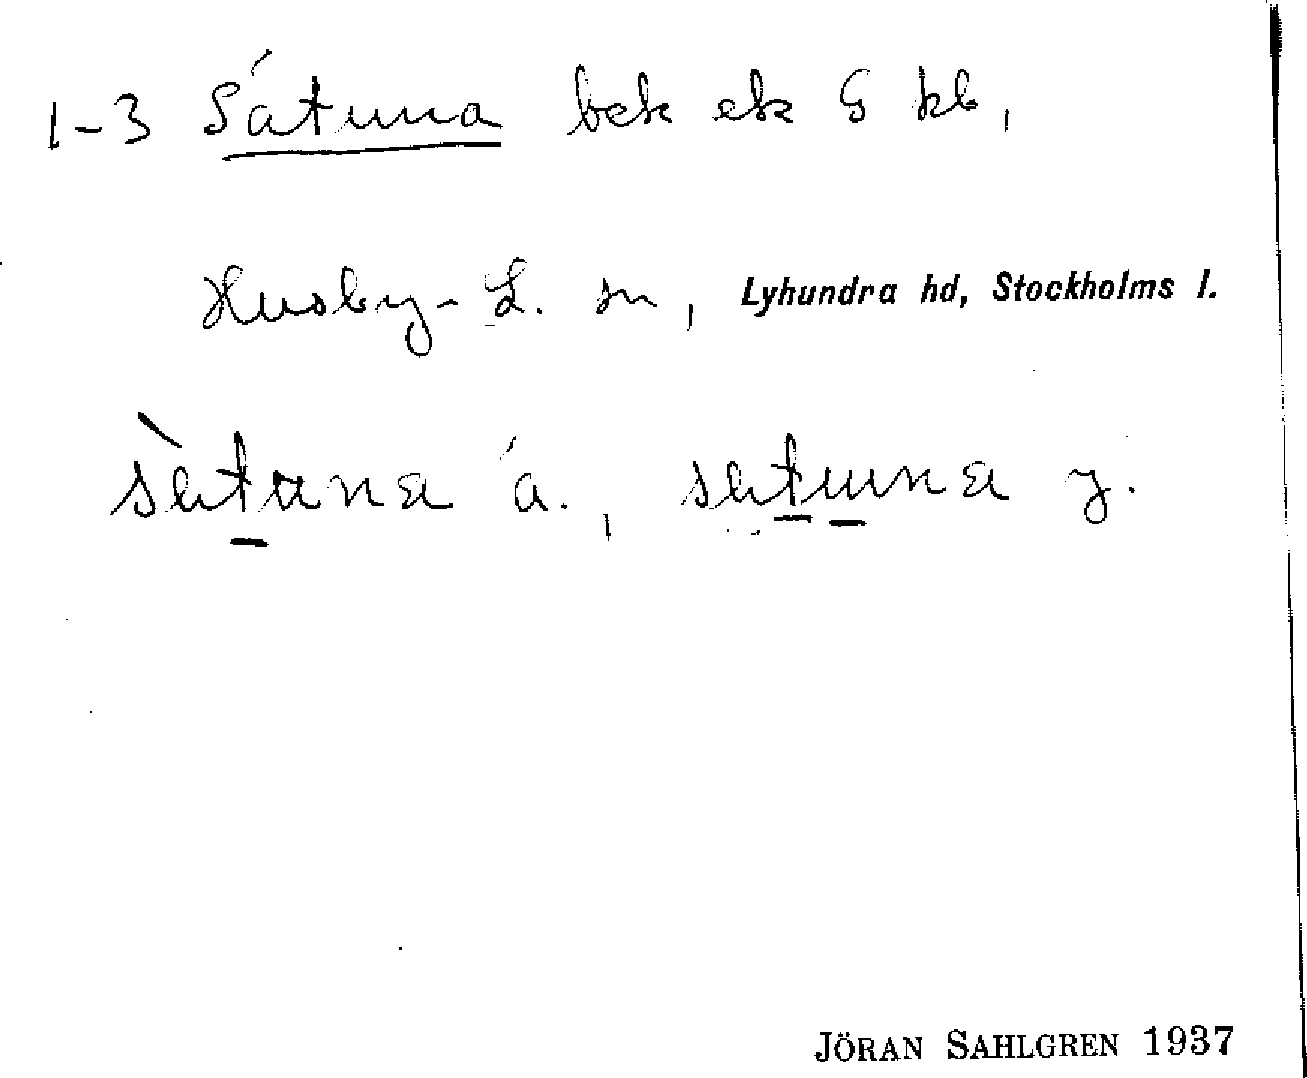 1-3 Såtuna bek ek G kb,
Husby-L. sn, Lyhundra hd, Stockholms l.
sàtuna ä., satuna y.
JÖRAN SAHLGREN 1937